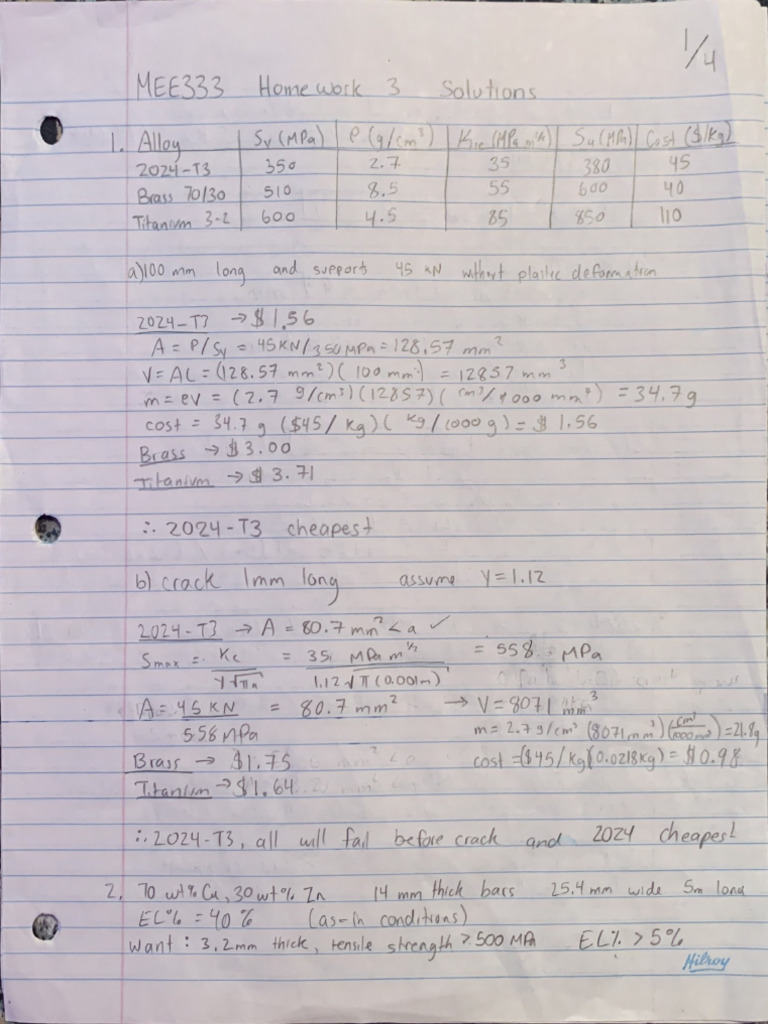 1/4
MEE333 Homework 3 Solutions
1. Alloy Sy (MPa) ρ (g/cm³) KIC (MPa m^½) Su (MPa) Cost ($/kg)
2024-T3 350 2.7 35 380 45
Brass 70/30 510 8.5 55 600 40
Titanium 3-2 600 4.5 85 850 110
a) 100 mm long and support 45 kN without plastic deformation
2024-T3 → $1.56
A = P/Sy = 45KN/350MPa = 128.57 mm²
V = AL = (128.57 mm²)(100 mm) = 12857 mm³
m = ρV = (2.7 g/cm³)(12857)(cm³/1000 mm³) = 34.7g
cost = 34.7 g ($45/kg)(kg/1000 g) = $1.56
Brass → $3.00
Titanium → $3.71
∴ 2024-T3 cheapest
b) crack 1mm long assume Y=1.12
2024-T3 → A = 80.7 mm² < a ✓
Smax = Kc/Y√πa = 35 MPa m^½/1.12√π(0.001m) = 558 MPa
A = 45 KN/558 MPa = 80.7 mm² → V = 8071 mm³
m = 2.7 g/cm³ (8071mm³)(cm³/1000mm³) = 21.8g
Brass → $1.75 cost = ($45/kg)(0.0218kg) = $0.98
Titanium → $1.64
∴ 2024-T3, all will fail before crack and 2024 cheapest
2. 70 wt% Cu, 30 wt% Zn 14 mm thick bars 25.4 mm wide 5m long
EL% = 40% (as-in conditions)
want: 3.2mm thick, tensile strength > 500 MPa EL% > 5%
Hilroy